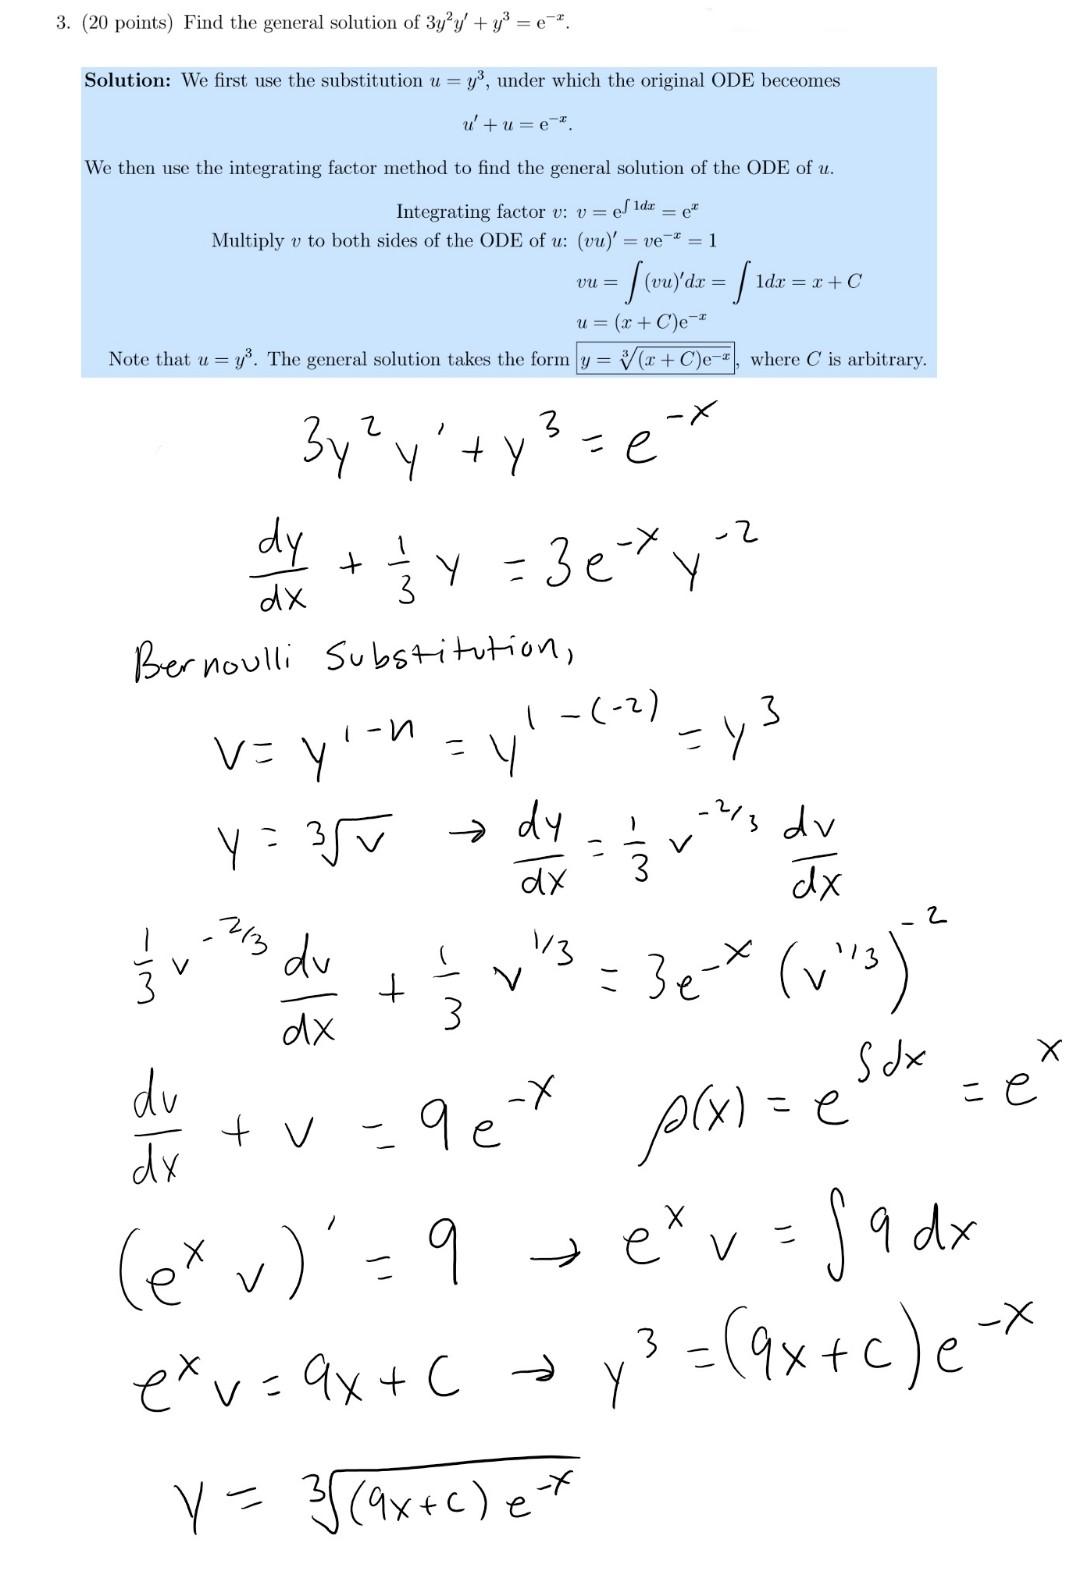 3. (20 points) Find the general solution of 3y²y′ + y³ = e⁻ˣ.
Solution: We first use the substitution u = y³, under which the original ODE beceomes
u′ + u = e⁻ˣ.
We then use the integrating factor method to find the general solution of the ODE of u.
Integrating factor v: v = e^{∫ 1dx} = eˣ
Multiply v to both sides of the ODE of u: (vu)′ = ve⁻ˣ = 1
vu = ∫ (vu)′dx = ∫ 1dx = x + C
u = (x + C)e⁻ˣ
Note that u = y³. The general solution takes the form y = ∛((x + C)e⁻ˣ), where C is arbitrary.
3y²y' + y³ = e⁻ˣ
dy/dx + 1/3 y = 3e⁻ˣ y⁻²
Bernoulli Substitution,
v = y^{1-n} = y^{1-(-2)} = y³
y = ∛v → dy/dx = 1/3 v^{-2/3} dv/dx
1/3 v^{-2/3} dv/dx + 1/3 v^{1/3} = 3e⁻ˣ (v^{1/3})⁻²
dv/dx + v = 9e⁻ˣ ρ(x) = e^{∫dx} = eˣ
(eˣ v)' = 9 → eˣ v = ∫ 9 dx
eˣ v = 9x + C → y³ = (9x + c) e⁻ˣ
y = ∛((9x + c) e⁻ˣ)